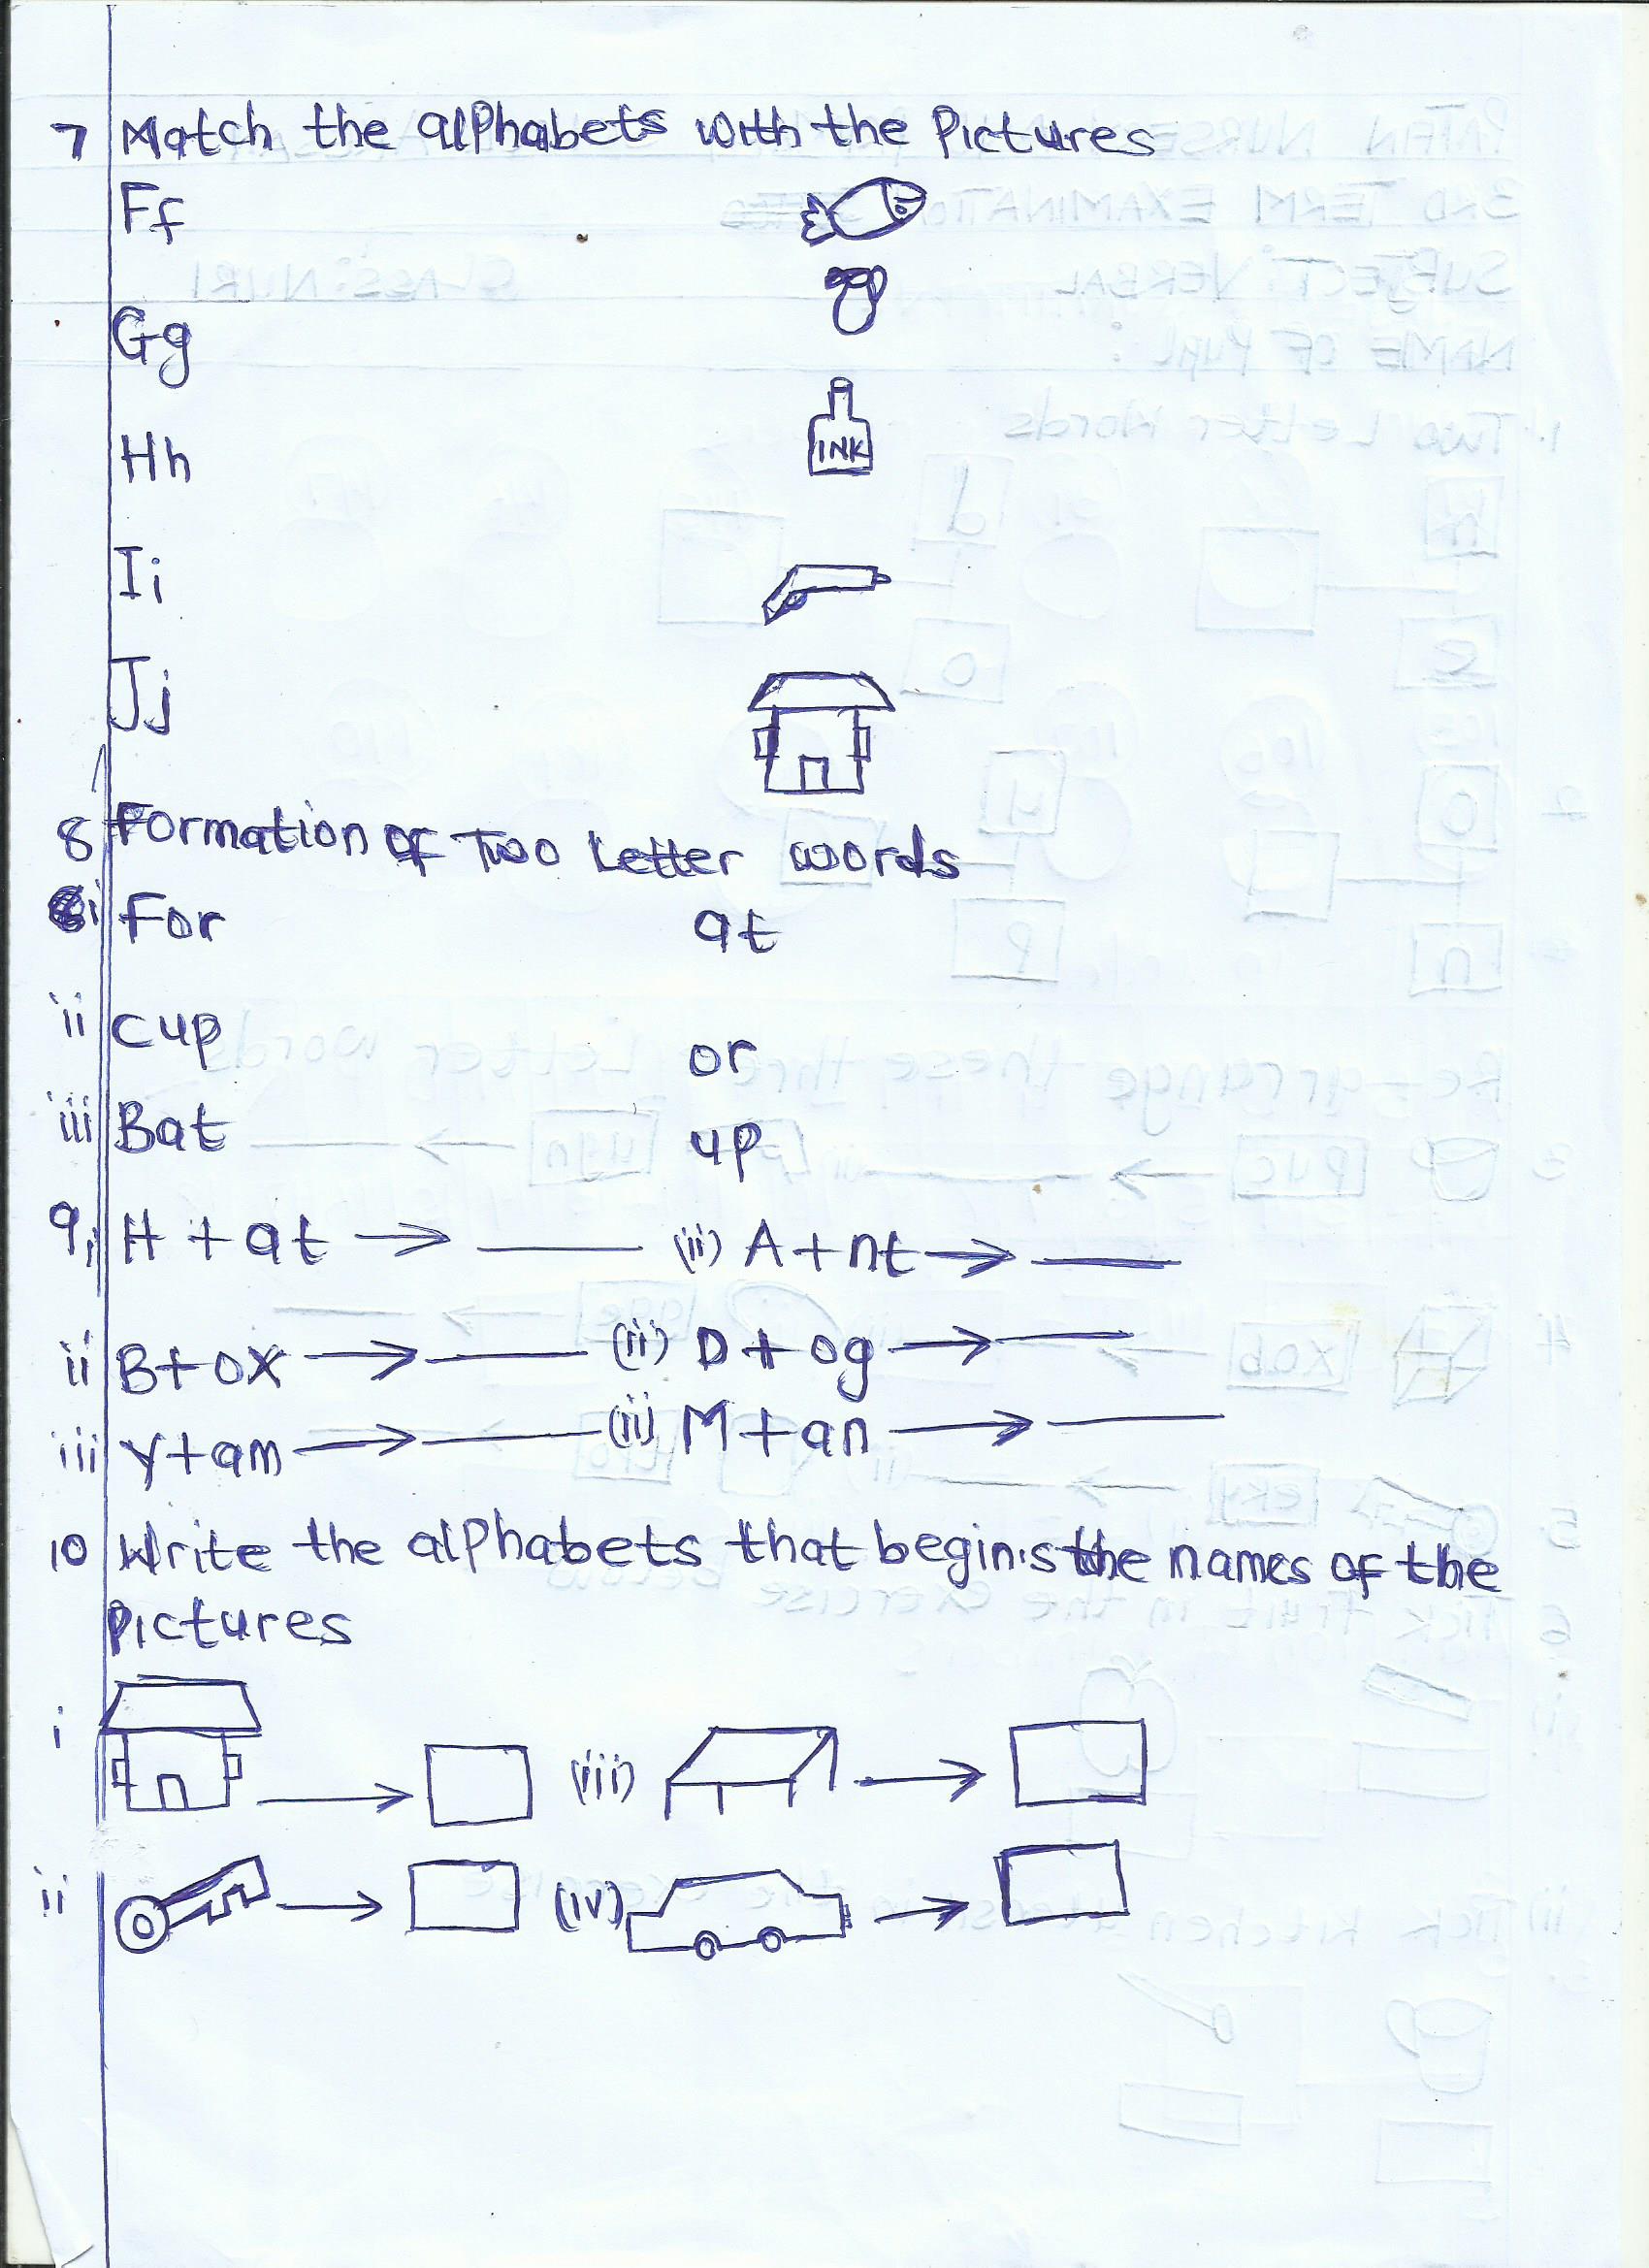 7 Match the alphabets with the Pictures
Ff
Gg
Hh
INK
Ii
Jj
8 Formation of Two Letter words
i For at
ii cup or
iii Bat up
9, H + at → ____ (ii) A + nt → ____
ii B + ox → ____ (ii) D + og → ____
iii Y + am → ____ (ii) M + an → ____
10 Write the alphabets that begins the names of the
Pictures
i (iii)
ii (iv)